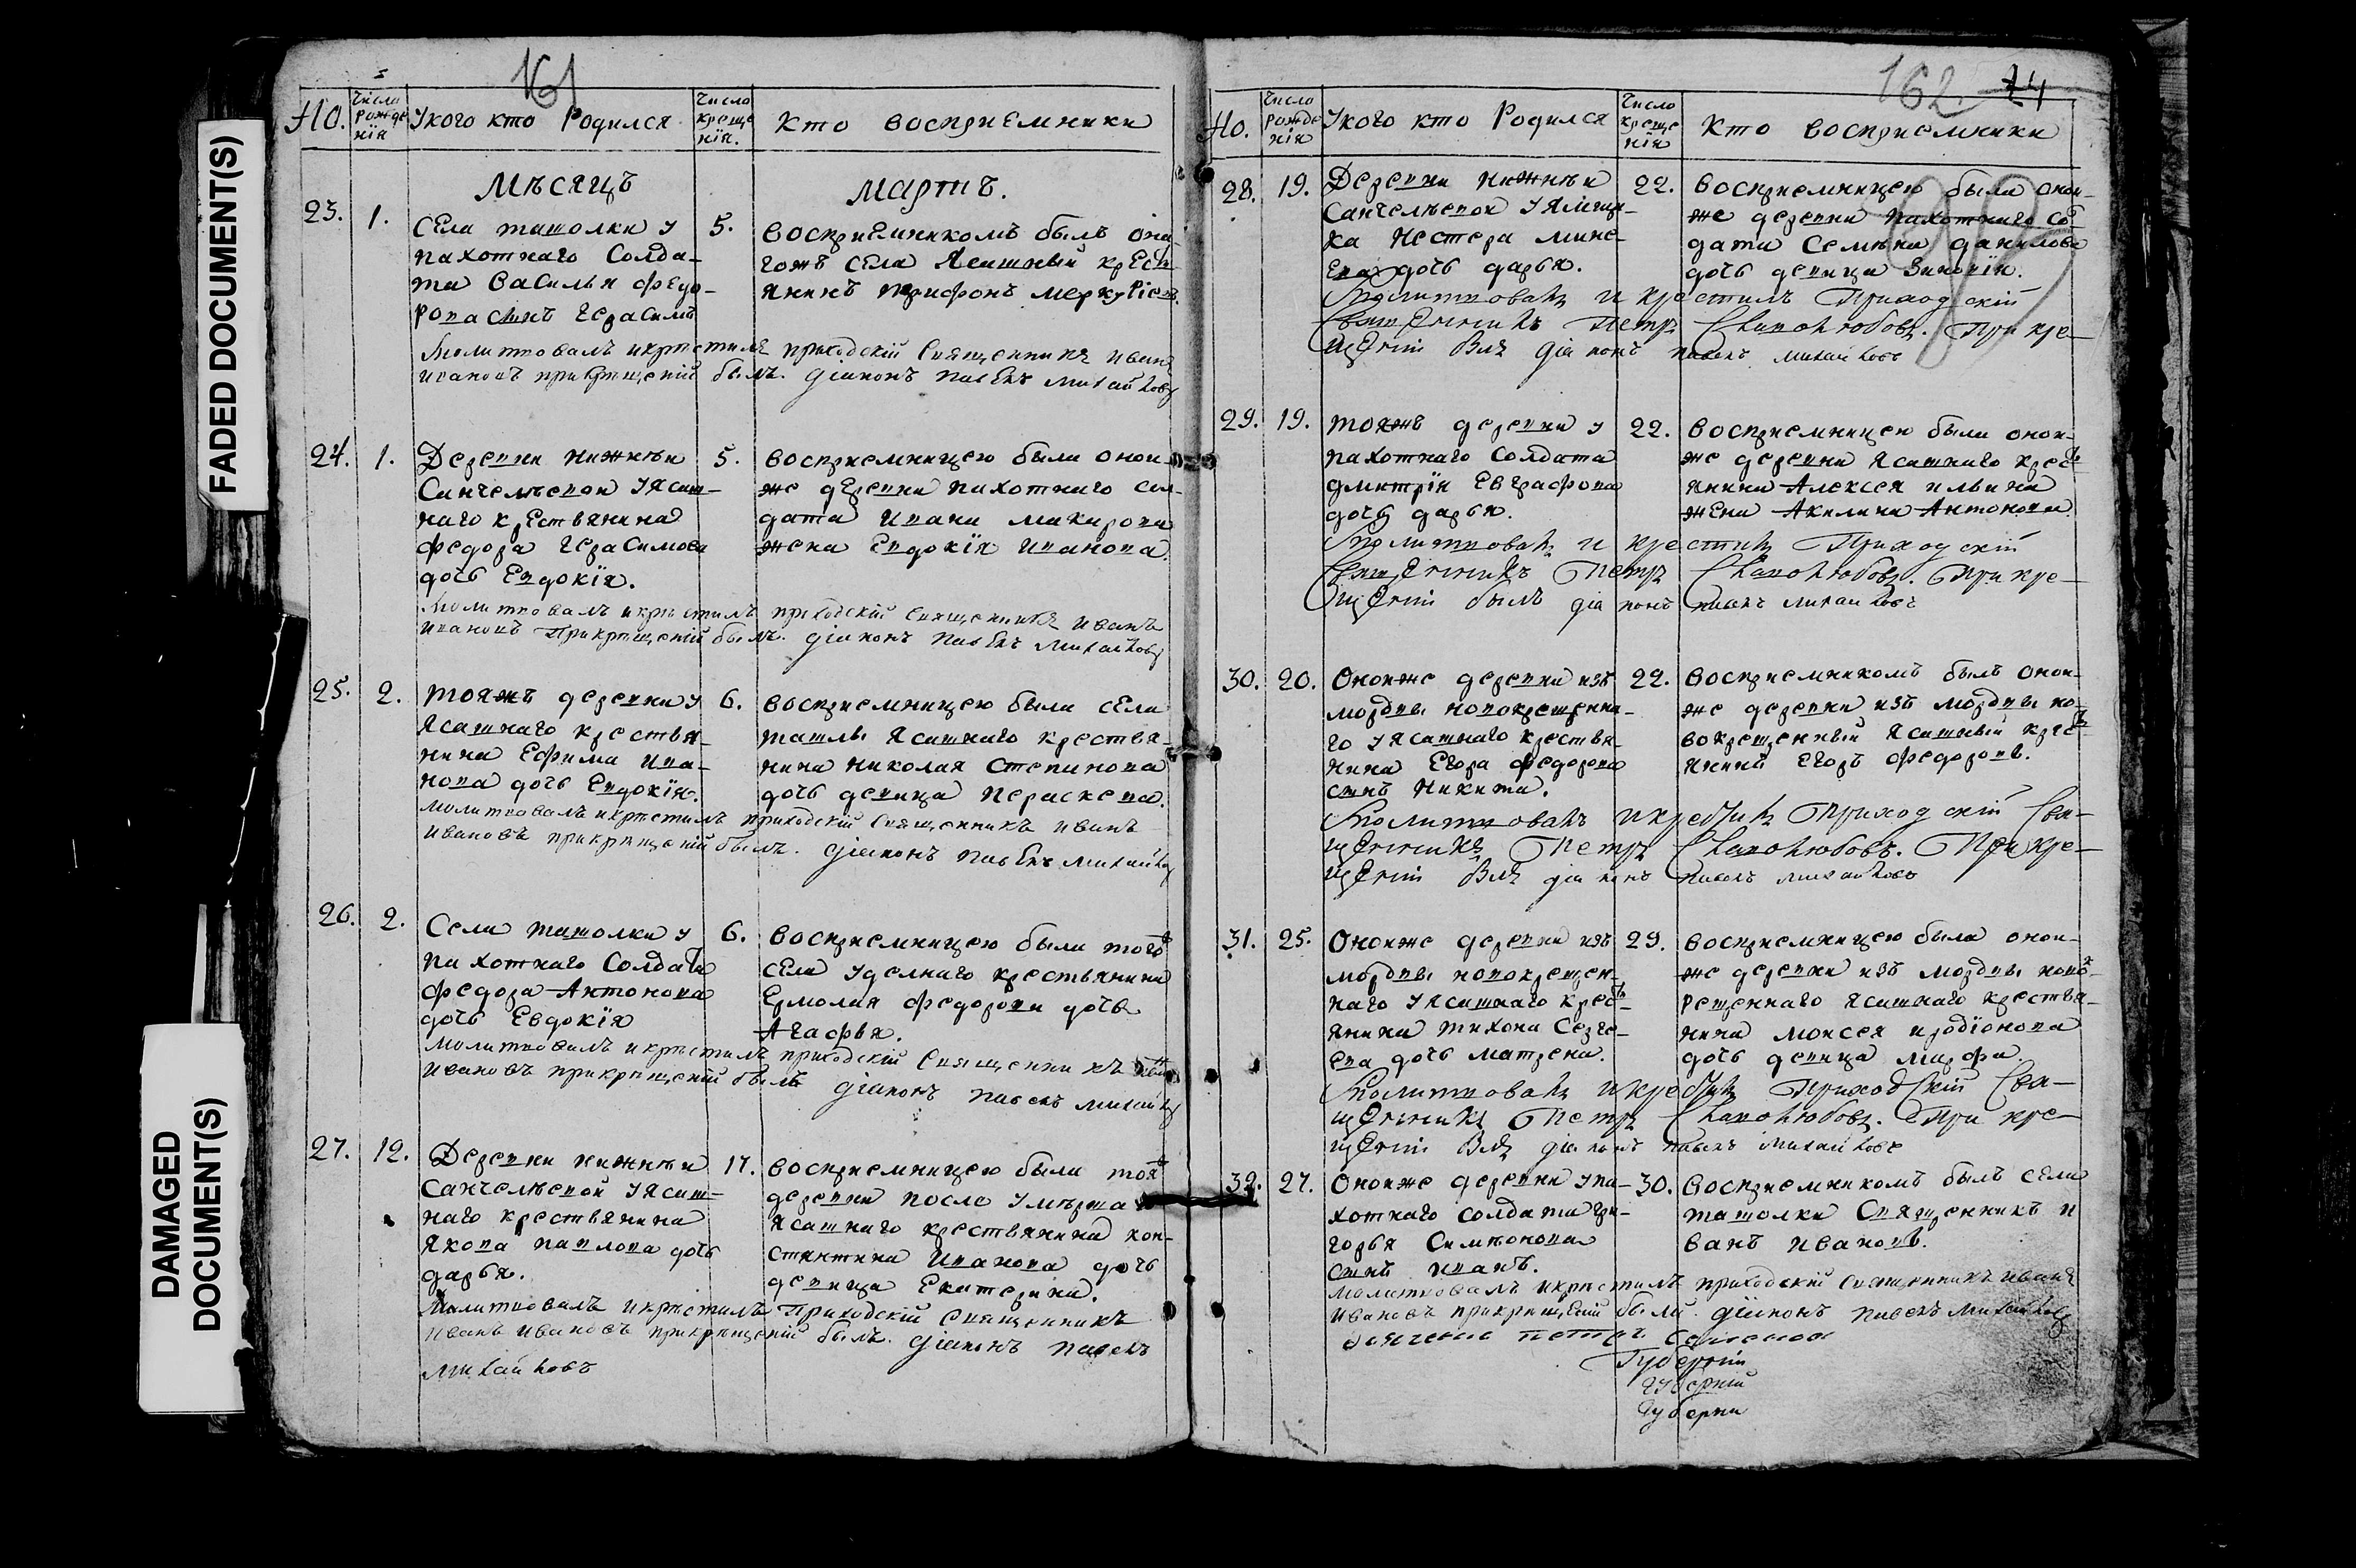 FADED DOCUMENT(S)
DAMAGED
DOCUMENT(S)
161
Но.
Число
рожде
нія
Укого кто Родился
Число
креще
нія.
Кто воспрιемники
Мѣсяцъ Мартъ.
23. 1.
Села ташолки у
пахотнаго Солда-
та Василья Федо-
рова сынъ Герасимъ
5.
воспрιемникомъ былъ она-
гожъ села Ясашный крест
янинъ Трифонъ Меркуріевъ.
молитвовалъ икрестилъ приходскій Священникъ иванъ
ивановъ прикрещеніи былъ. діаконъ павелъ михайловъ
24. 1.
Деревни нижнѣи
Санчелѣевои уясаш-
наго крестьянина
федора герасимова
дочь Евдокія.
5.
воспрιемницею была онои-
же деревни пахотнаго сол-
дата Ивана Макарова
жена Евдокія Иванова.
молитвовалъ икрестилъ приходскій Священникъ иванъ
ивановъ Прикрещеніи былъ. діаконъ павелъ михайловъ
25. 2.
тояжъ деревни у
Ясашнаго крестья-
нина Ефима Ива-
нова дочь Евдокія.
6.
воспрιемницею была села
ташлы Ясашнаго крестья-
нина Николая Степанова
дочь девица Пераскева.
молитвовалъ икрестилъ приходскій Священникъ иванъ
ивановъ прикрещеніи былъ. діаконъ павелъ михайловъ
26. 2.
Села ташолки у
пахотнаго Солдата
федора Антонова
дочь Евдокія
6.
воспрιемницею была тогожъ
села уделнаго крестьянина
Ермолая федорова дочь
Агафья.
молитвовалъ икрестилъ приходскій Священникъ иванъ
ивановъ прикрещеніи былъ діаконъ павелъ михайловъ
27. 12.
Деревни нижнѣи
Санчелѣевои уясаш-
наго крестьянина
Якова павлова дочь
дарья.
17.
воспрιемницею была тояжъ
деревни после умѣрша
Ясашнаго крестьянина кон-
стянтина Иванова дочь
девица Екатерина.
молитвовалъ икрестилъ Приходскій Священникъ
иванъ ивановъ прикрещеніи былъ. діаконъ павелъ
михайловъ
162. 74
Но.
Число
рожде
нія
Укого кто Родился
Число
креще
нія
Кто воспрιемники
28. 19.
Деревни нижнѣи
Санчелѣевои уямщи-
ка Нестера мине-
ева дочь дарья.
22.
воспрιемницею была онои-
же деревни пахотнаго сол
дата Семѣна данилова
дочь девица Зиновія.
молитвовалъ и крестилъ Приходскій
Священникъ Петръ Славолюбовъ. При кре-
щеніи былъ діаконъ павелъ михайловъ
29. 19.
тояжъ деревни у
пахотнаго Солдата
дмитрія Евграфова
дочь дарья.
22.
воспрιемницею была онои-
же деревни ясашнаго крест
янина Алексея ильина
жена Акилина Антонова.
молитвовалъ и крестилъ Приходскій
Священникъ Петръ Славолюбовъ. При кре-
щеніи былъ діаконъ павелъ михайловъ
30. 20.
Оноиже деревни изъ
мордвы новокрещенна-
го уясашнаго крестья-
нина Егора федорова
сынъ Никита.
22.
воспрιемникомъ былъ онои-
же деревни изъ мордвы но-
вокрещенный Ясашный крест
янинъ Егоръ федоровъ.
молитвовалъ икрестилъ Приходскій Свя-
щенникъ Петръ Славолюбовъ. При кре-
щеніи былъ діаконъ павелъ михайловъ
31. 25.
Оноиже деревни изъ
мордвы новокрещен-
наго уясашнаго крест
янина тихона Серге-
ева дочь матрена.
29.
воспрιемницею была онои-
же деревни изъ мордвы новок-
рещеннаго ясашнаго крестья-
нина моисея иродіонова
дочь девица марфа.
молитвовалъ икрестилъ Приходскій Свя-
щенникъ Петръ Славолюбовъ. При кре-
щеніи былъ діаконъ павелъ михайловъ
32. 27.
Оноиже деревни упа-
хотнаго солдата гри-
горья Симѣонова
сынъ иванъ.
30.
воспрιемникомъ былъ села
ташолки Священникъ и
ванъ ивановъ.
молитвовалъ икрестилъ приходскій священникъ иванъ
ивановъ прикрещеніи были. діаконъ павелъ михайловъ
петръ
Губерніи
губерніи
Губерни